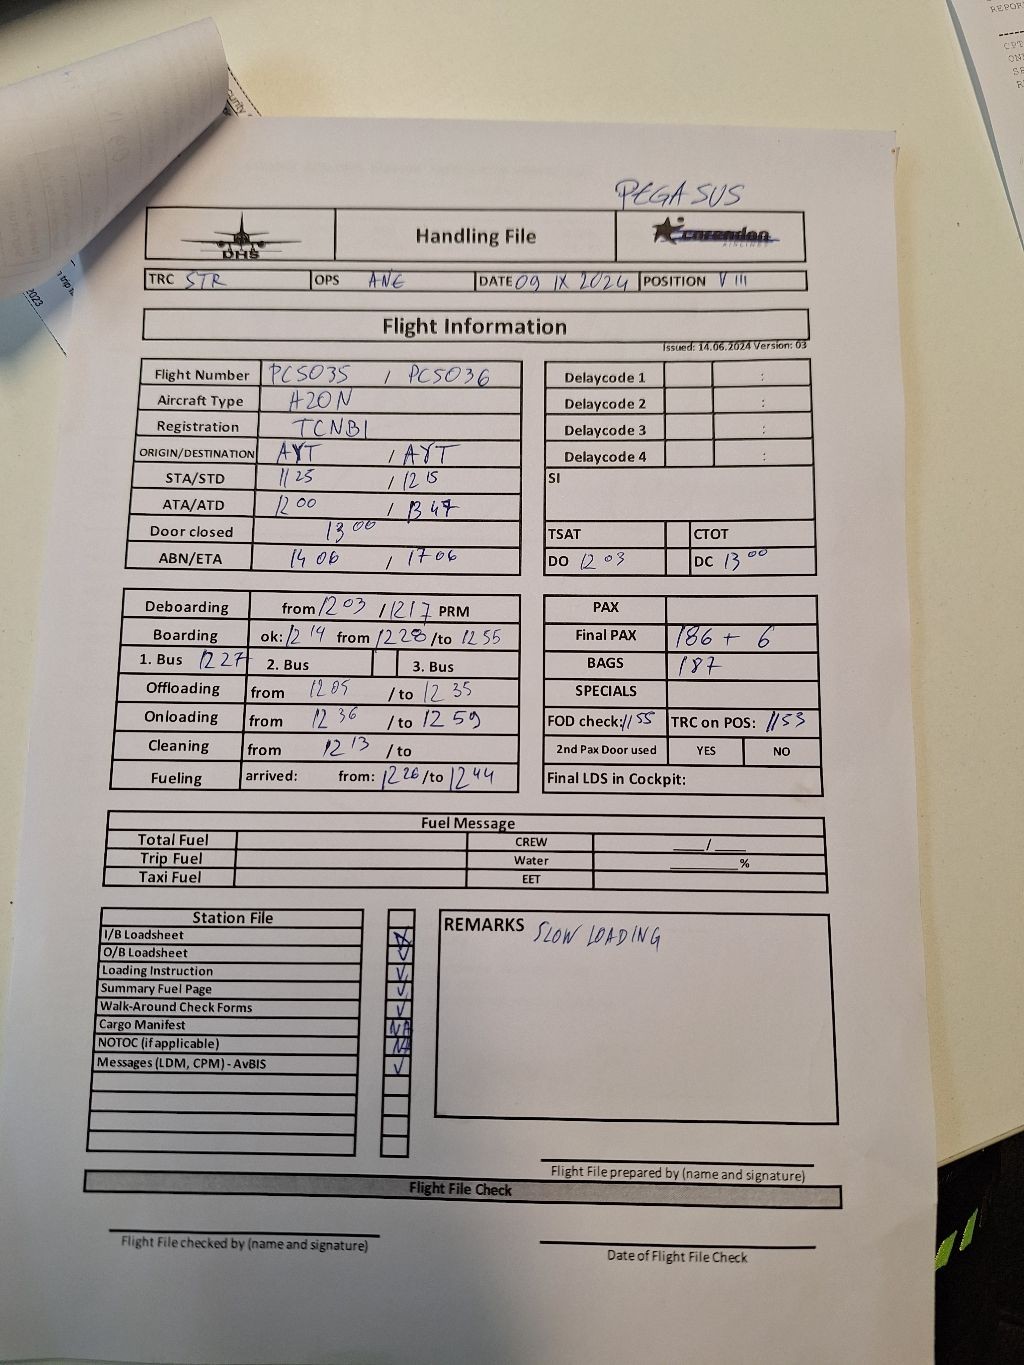 REPOR
CPT
ON
SE
R
urity
2023
PEGASUS
DHS Handling File corendon AIRLINES
TRC STR OPS ANE DATE 09 IX 2024 POSITION V III
Flight Information
Issued: 14.06.2024 Version: 03
Flight Number PC5035 / PC5036 Delaycode 1 :
Aircraft Type A20N Delaycode 2 :
Registration TCNBI Delaycode 3 :
ORIGIN/DESTINATION AYT / AYT Delaycode 4 :
STA/STD 11 25 / 12 15 SI
ATA/ATD 12 00 / 13 47
Door closed 13 00 TSAT CTOT
ABN/ETA 14 06 / 17 06 DO 12 03 DC 13 00
Deboarding from 12 03 / 12 17 PRM PAX
Boarding ok: 12 14 from 12 28 /to 12 55 Final PAX 186 + 6
1. Bus 12 27 2. Bus 3. Bus BAGS 187
Offloading from 12 05 / to 12 35 SPECIALS
Onloading from 12 36 / to 12 59 FOD check: 11 55 TRC on POS: 11 53
Cleaning from 12 13 / to 2nd Pax Door used YES NO
Fueling arrived: from: 12 26 /to 12 44 Final LDS in Cockpit:
Fuel Message
Total Fuel CREW ___/___
Trip Fuel Water ______%
Taxi Fuel EET
Station File REMARKS SLOW LOADING
I/B Loadsheet
O/B Loadsheet
Loading Instruction
Summary Fuel Page
Walk-Around Check Forms
Cargo Manifest NA
NOTOC (if applicable) NA
Messages (LDM, CPM) - AvBIS
Flight File prepared by (name and signature)
Flight File Check
Flight File checked by (name and signature)
Date of Flight File Check